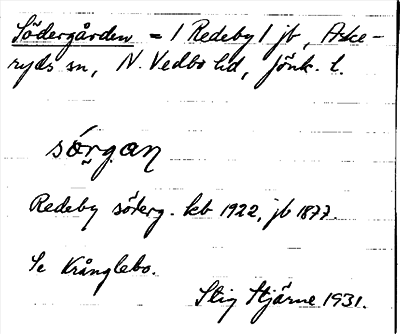 Södergården = / Redeby / jb, Aske-
ryds sn, N. Vedbo hd, Jönk. l.
sörgan
Redeby söderg. kb 1922, jb 1877.
Se Krånglebo.
Stig Stjärne 1931.